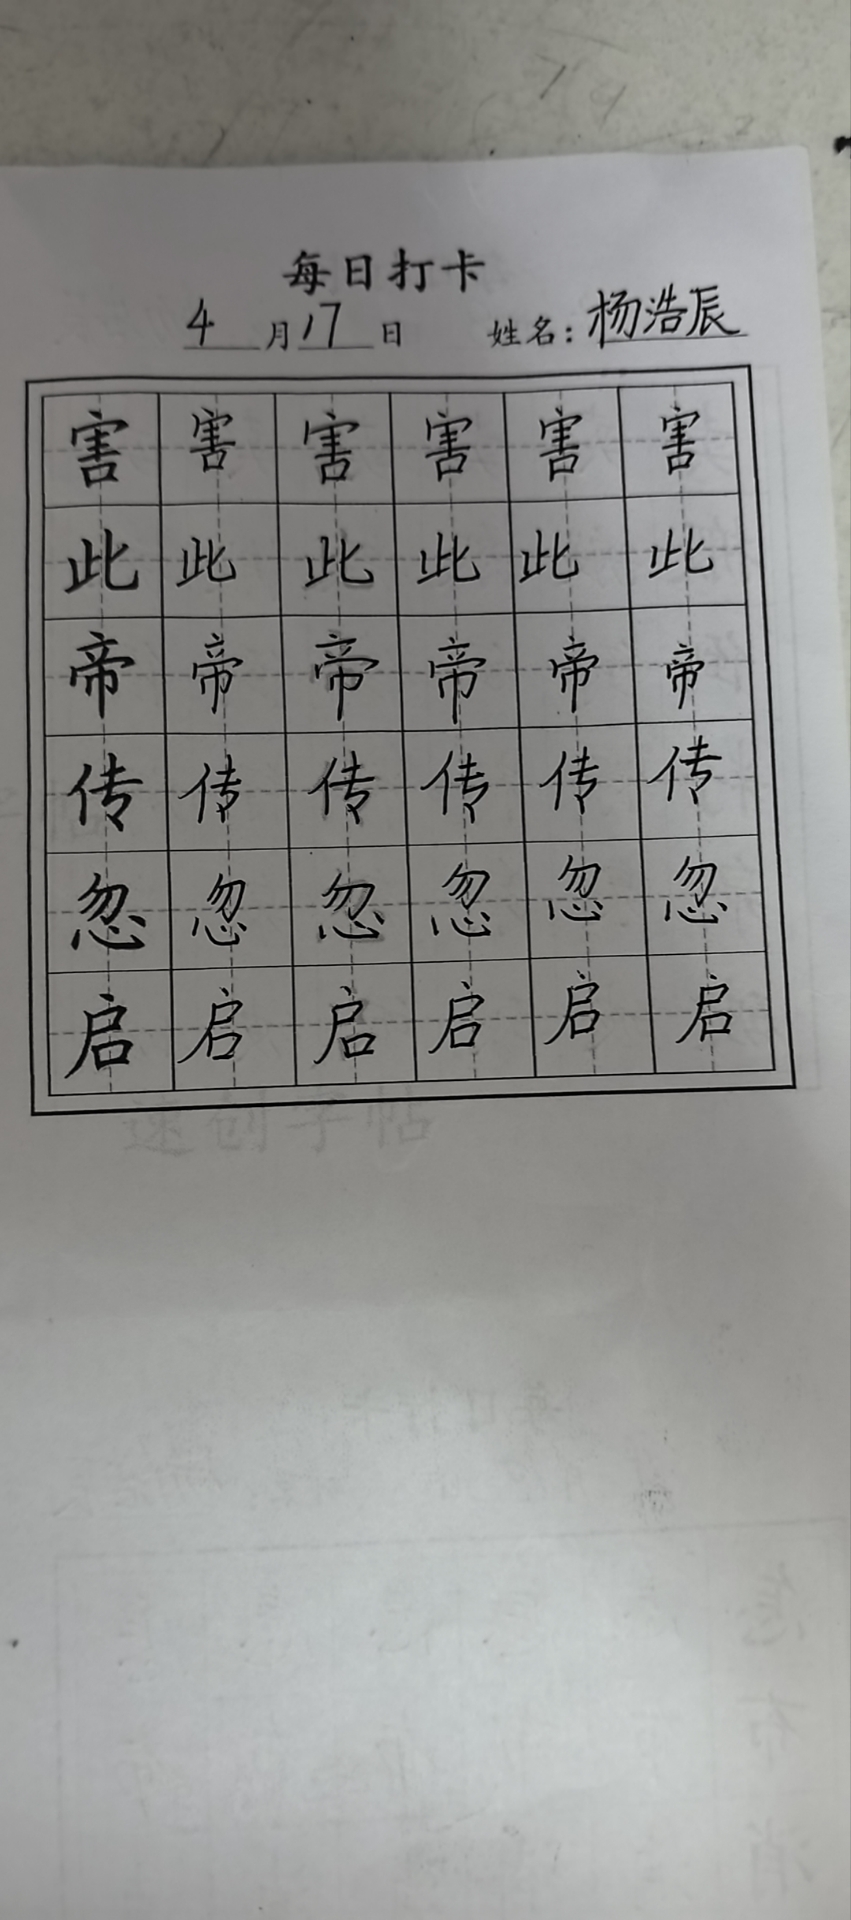 每日打卡
4月17日 姓名：杨浩辰
害害害害害害
此此此此此此
帝帝帝帝帝帝
传传传传传传
忽忽忽忽忽忽
启启启启启启
速创字帖